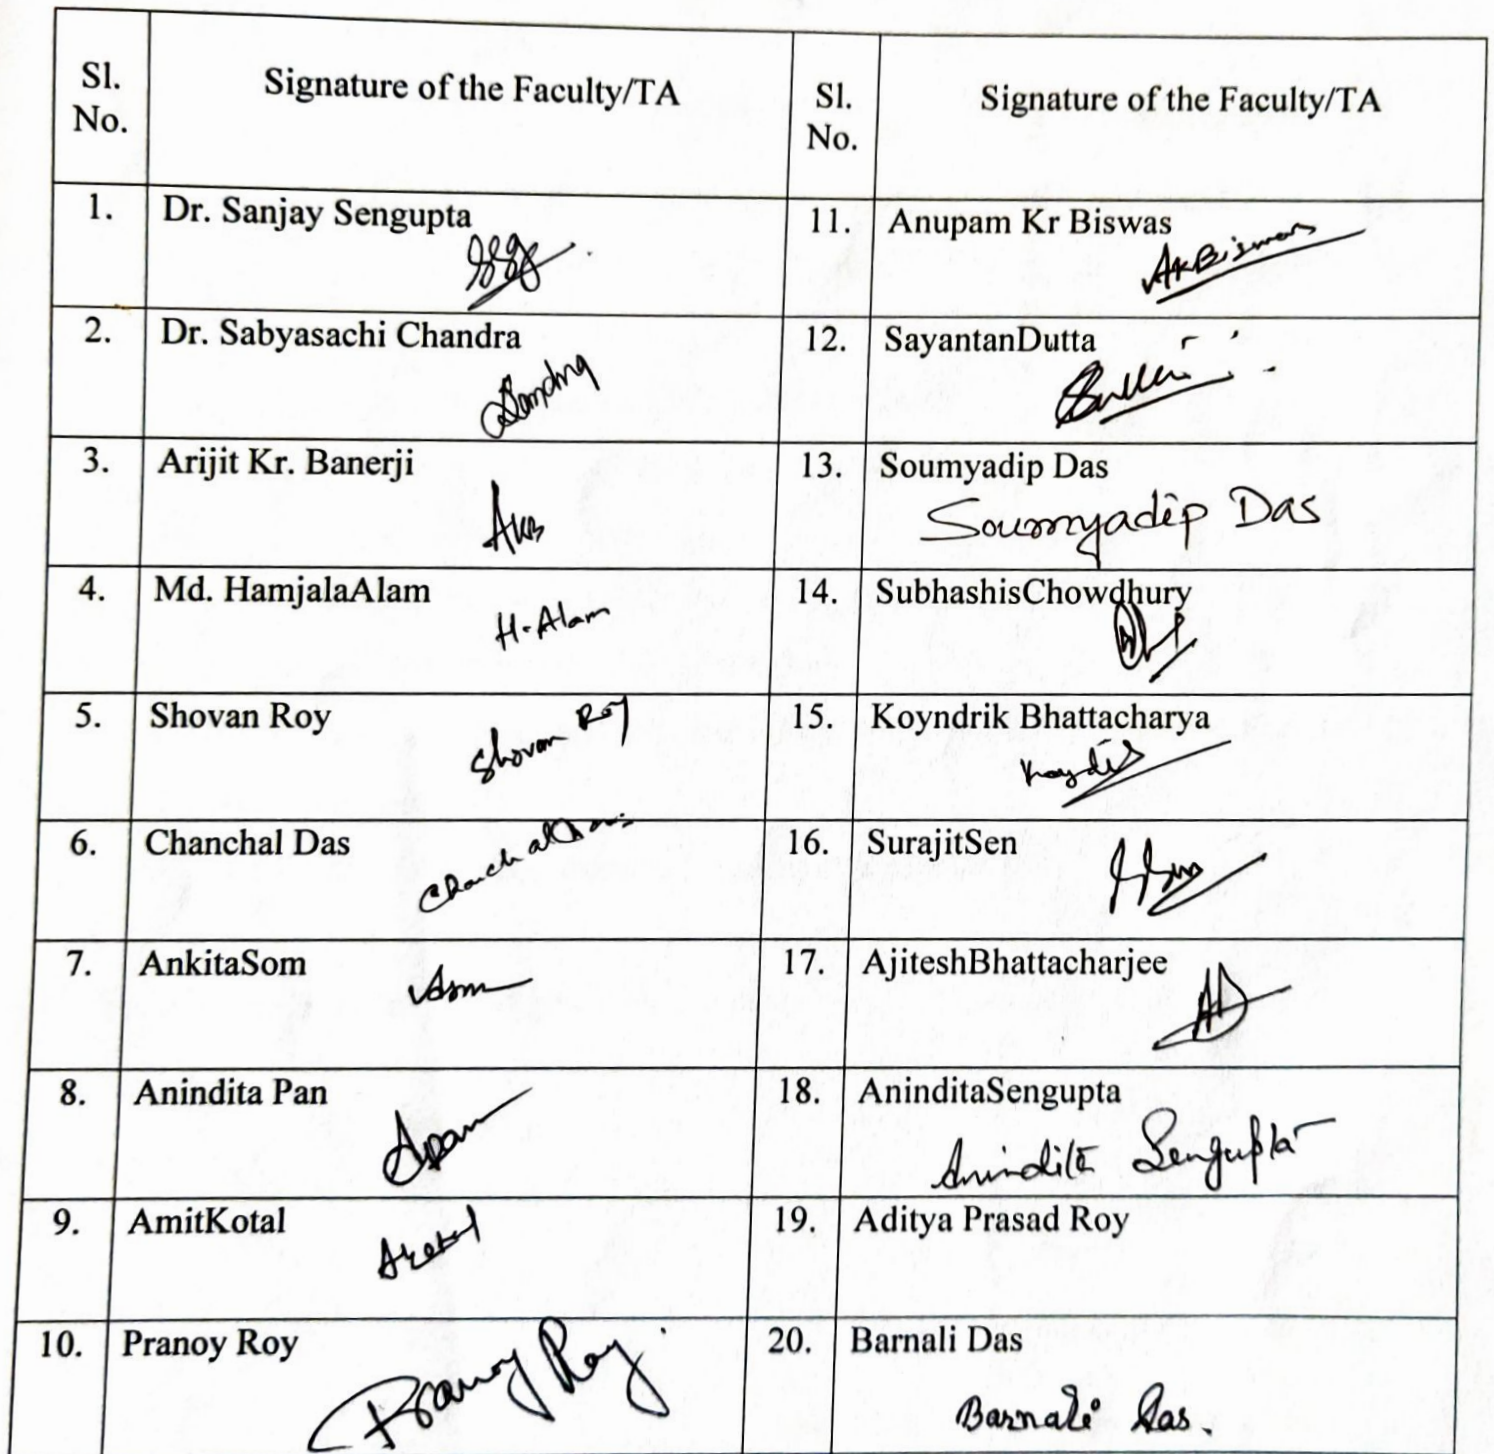 Sl. No. Signature of the Faculty/TA Sl. No. Signature of the Faculty/TA
1. Dr. Sanjay Sengupta 11. Anupam Kr Biswas
AKBiswas
2. Dr. Sabyasachi Chandra 12. SayantanDutta
3. Arijit Kr. Banerji 13. Soumyadip Das
AKB Soumyadip Das
4. Md. HamjalaAlam 14. SubhashisChowdhury
H. Alam
5. Shovan Roy 15. Koyndrik Bhattacharya
Shovan Roy
6. Chanchal Das 16. SurajitSen
Chanchal Das
7. AnkitaSom 17. AjiteshBhattacharjee
8. Anindita Pan 18. AninditaSengupta
Apan Anindita Sengupta
9. AmitKotal 19. Aditya Prasad Roy
Akotal
10. Pranoy Roy 20. Barnali Das
Pranoy Roy Barnali Das.